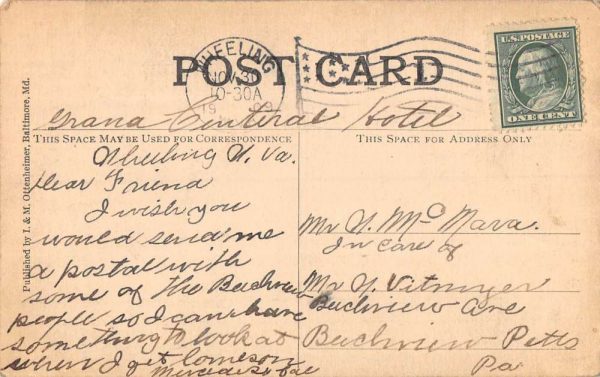 POST CARD
WHEELING
NOV 3
10-30A
1909
U.S. POSTAGE
ONE CENT
Grand Central Hotel
THIS SPACE MAY BE USED FOR CORRESPONDENCE
THIS SPACE FOR ADDRESS ONLY
Published by I. & M. Ottenheimer, Baltimore, Md.
Wheeling W. Va.
Dear Friend
I wish you
would send me
a postal with
some of the Beechview
people so I can have
something to look at
when I get lonesom
Mr W. Mc Nara.
In care of
Mr Y.
Beechview Ave
Beechview Pitts
Pa